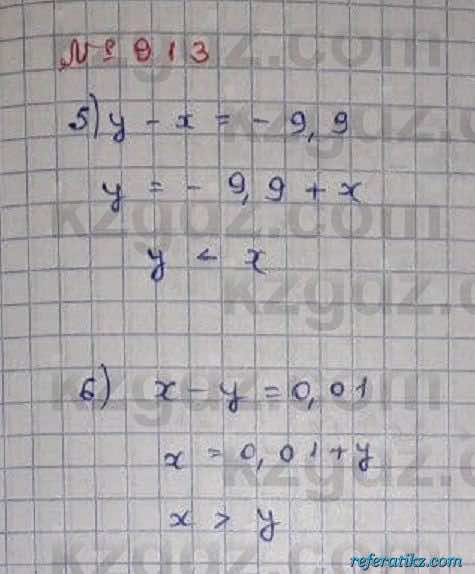 № 913
5) y - x = - 9,9
y = - 9,9 + x
y < x
6) x - y = 0,01
x = 0,01 + y
x > y
kzgdz.com
referatikz.com